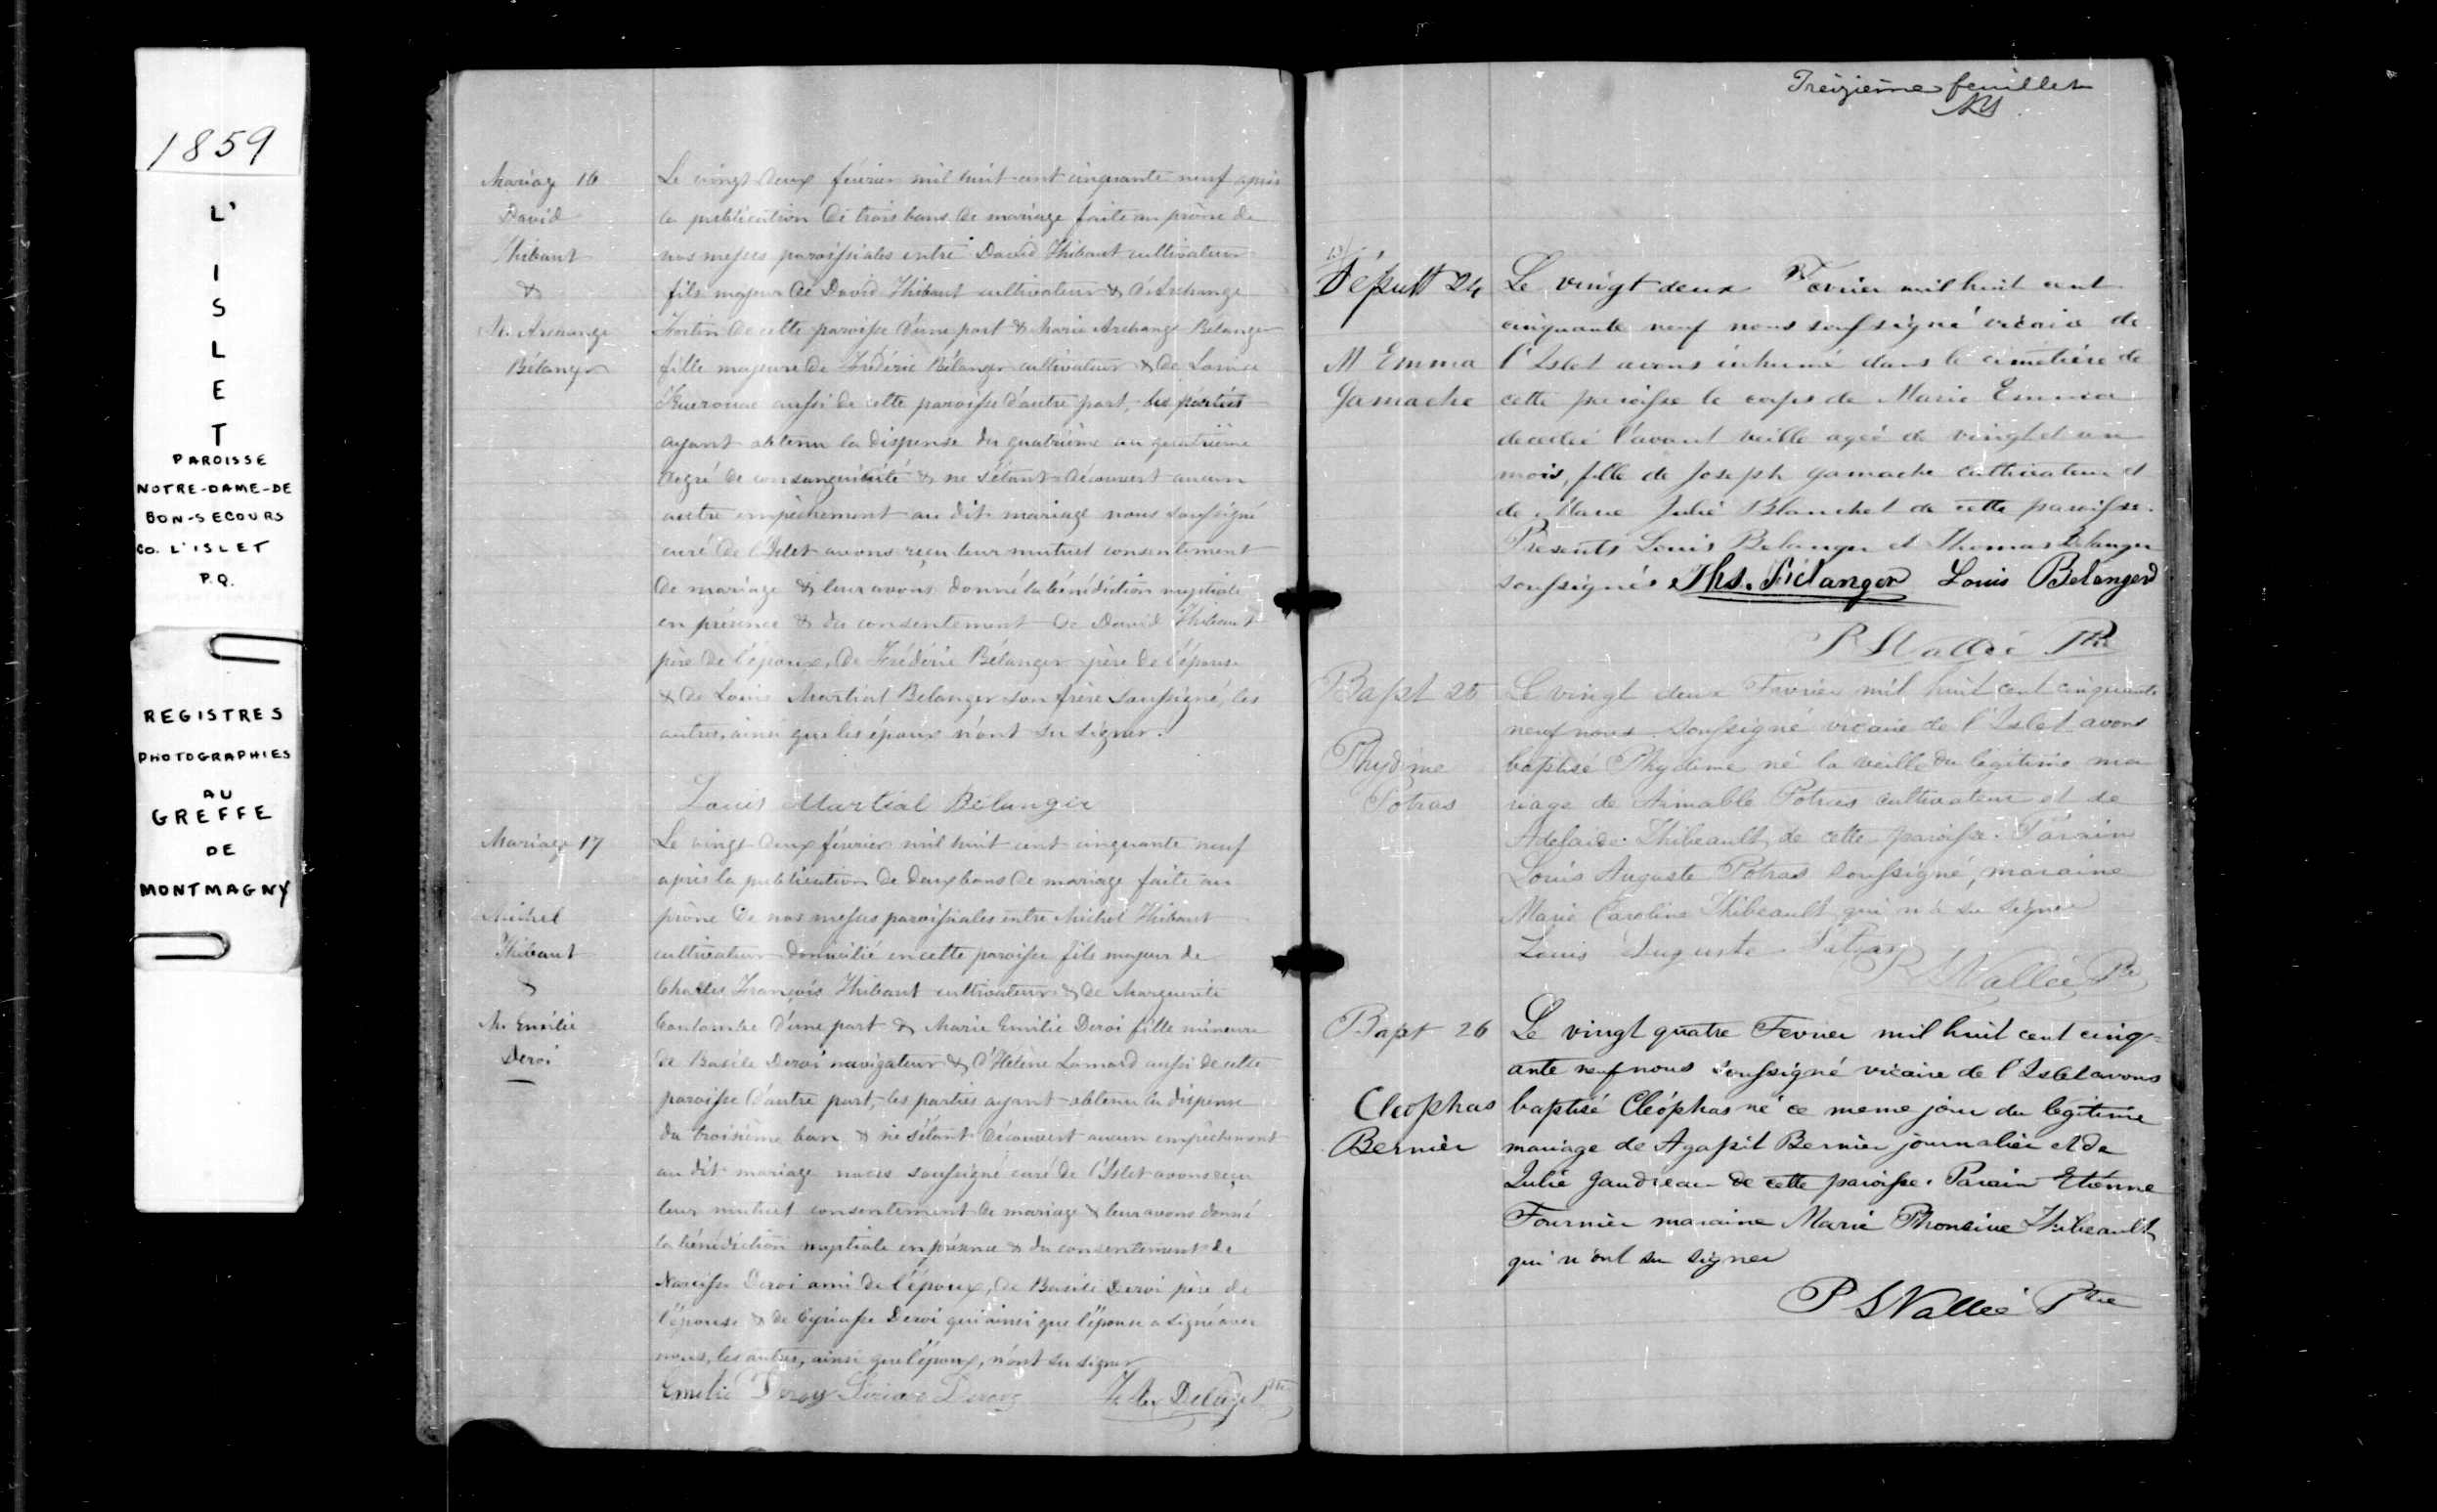 1859
L'
I
S
L
E
T
PAROISSE
NOTRE-DAME-DE
BON-SECOURS
CO. L'ISLET
P.Q.
REGISTRES
PHOTOGRAPHIES
AU
GREFFE
DE
MONTMAGNY
Mariage 16
David
Thibaut
&
M. Archange
Bélanger
Le vingt deux février mil huit cent cinquante neuf après
la publication de trois bans de mariage faite au prône de
nos messes paroissiales entre David Thibaut cultivateur
fils majeur de David Thibaut cultivateur & d'Archange
Fortin de cette paroisse d'une part & Marie Archange Bélanger
fille majeure de Frédéric Bélanger cultivateur & de Louise
Kuerouac aussi de cette paroisse d'autre part, les parties
ayant obtenu la dispense du quatrième au quatrième
degré de consanguinité & ne s'étant découvert aucun
autre empêchement au dit mariage nous soussigné
curé de l'Islet avons reçu leur mutuel consentement
de mariage & leur avons donné la bénédiction nuptiale
en présence & du consentement de David Thibaut
père de l'époux, de Frédéric Bélanger père de l'épouse
& de Louis Martial Bélanger son frère soussigné, les
autres, ainsi que les époux n'ont su signer.
Louis Martial Bélanger
Mariage 17
Michel
Thibaut
&
M. Emilie
Deroi
Le vingt deux février mil huit cent cinquante neuf
après la publication de deux bans de mariage faite au
prône de nos messes paroissiales entre Michel Thibaut
cultivateur domicilié en cette paroisse fils majeur de
Charles François Thibaut cultivateur & de Marguerite
Coulombe d'une part & Marie Emilie Deroi fille mineure
de Basile Deroi navigateur & d'Helène Lamard aussi de cette
paroisse d'autre part, les parties ayant obtenu la dispense
du troisième ban & ne s'étant découvert aucun empêchement
au dit mariage nous soussigné curé de l'Islet avons reçu
leur mutuel consentement de mariage & leur avons donné
la bénédiction nuptiale en présence & du consentement de
Narcisse Deroi ami de l'époux, de Basile Deroi père de
l'épouse & de Cyriasse Deroi qui ainsi que l'épouse a signé avec
nous, les autres, ainsi que l'époux, n'ont su signer
Emelie Deroy Deroy Delâge Ptre
Treizième feuillet
Sépult 24
M Emma
Gamache
Le vingt deux Fevrier mil huit cent
cinquante neuf nous soussigné vicaire de
l'Islet avons inhumé dans le cimetière de
cette paroisse le corps de Marie Emma
decedée l'avant veille agée de vingt et un
mois, fille de Joseph Gamache cultivateur et
de Marie Julie Blanchet de cette paroisse.
Présents Louis Belanger et Thomas Belanger
soussignés Ths. Bélanger Louis Belanger
P S Vallée Ptre
Bapt 25
Phydime
Potras
Le vingt deux Fevrier mil huit cent cinquante
neuf nous soussigné vicaire de l'Islet avons
baptisé Phydime né la veille du légitime ma
riage de Aimable Potras cultivateur et de
Adelaide Thibeault de cette paroisse. Parain
Louis Auguste Potras soussigné, maraine
Marie Caroline Thibeault qui n'a su signer
Louis Auguste Potras
P S Vallée Ptre
Bapt 26
Cleophas
Bernier
Le vingt quatre Fevrier mil huit cent cinq-
ante neuf nous soussigné vicaire de l'Islet avons
baptisé Cléophas né ce meme jour du légitime
mariage de Agapit Bernier journalier et de
Julie Gaudreau de cette paroisse. Parain Etienne
Fournier maraine Marie Phonsine Thibeault
qui n'ont su signer
P S Vallée Ptre